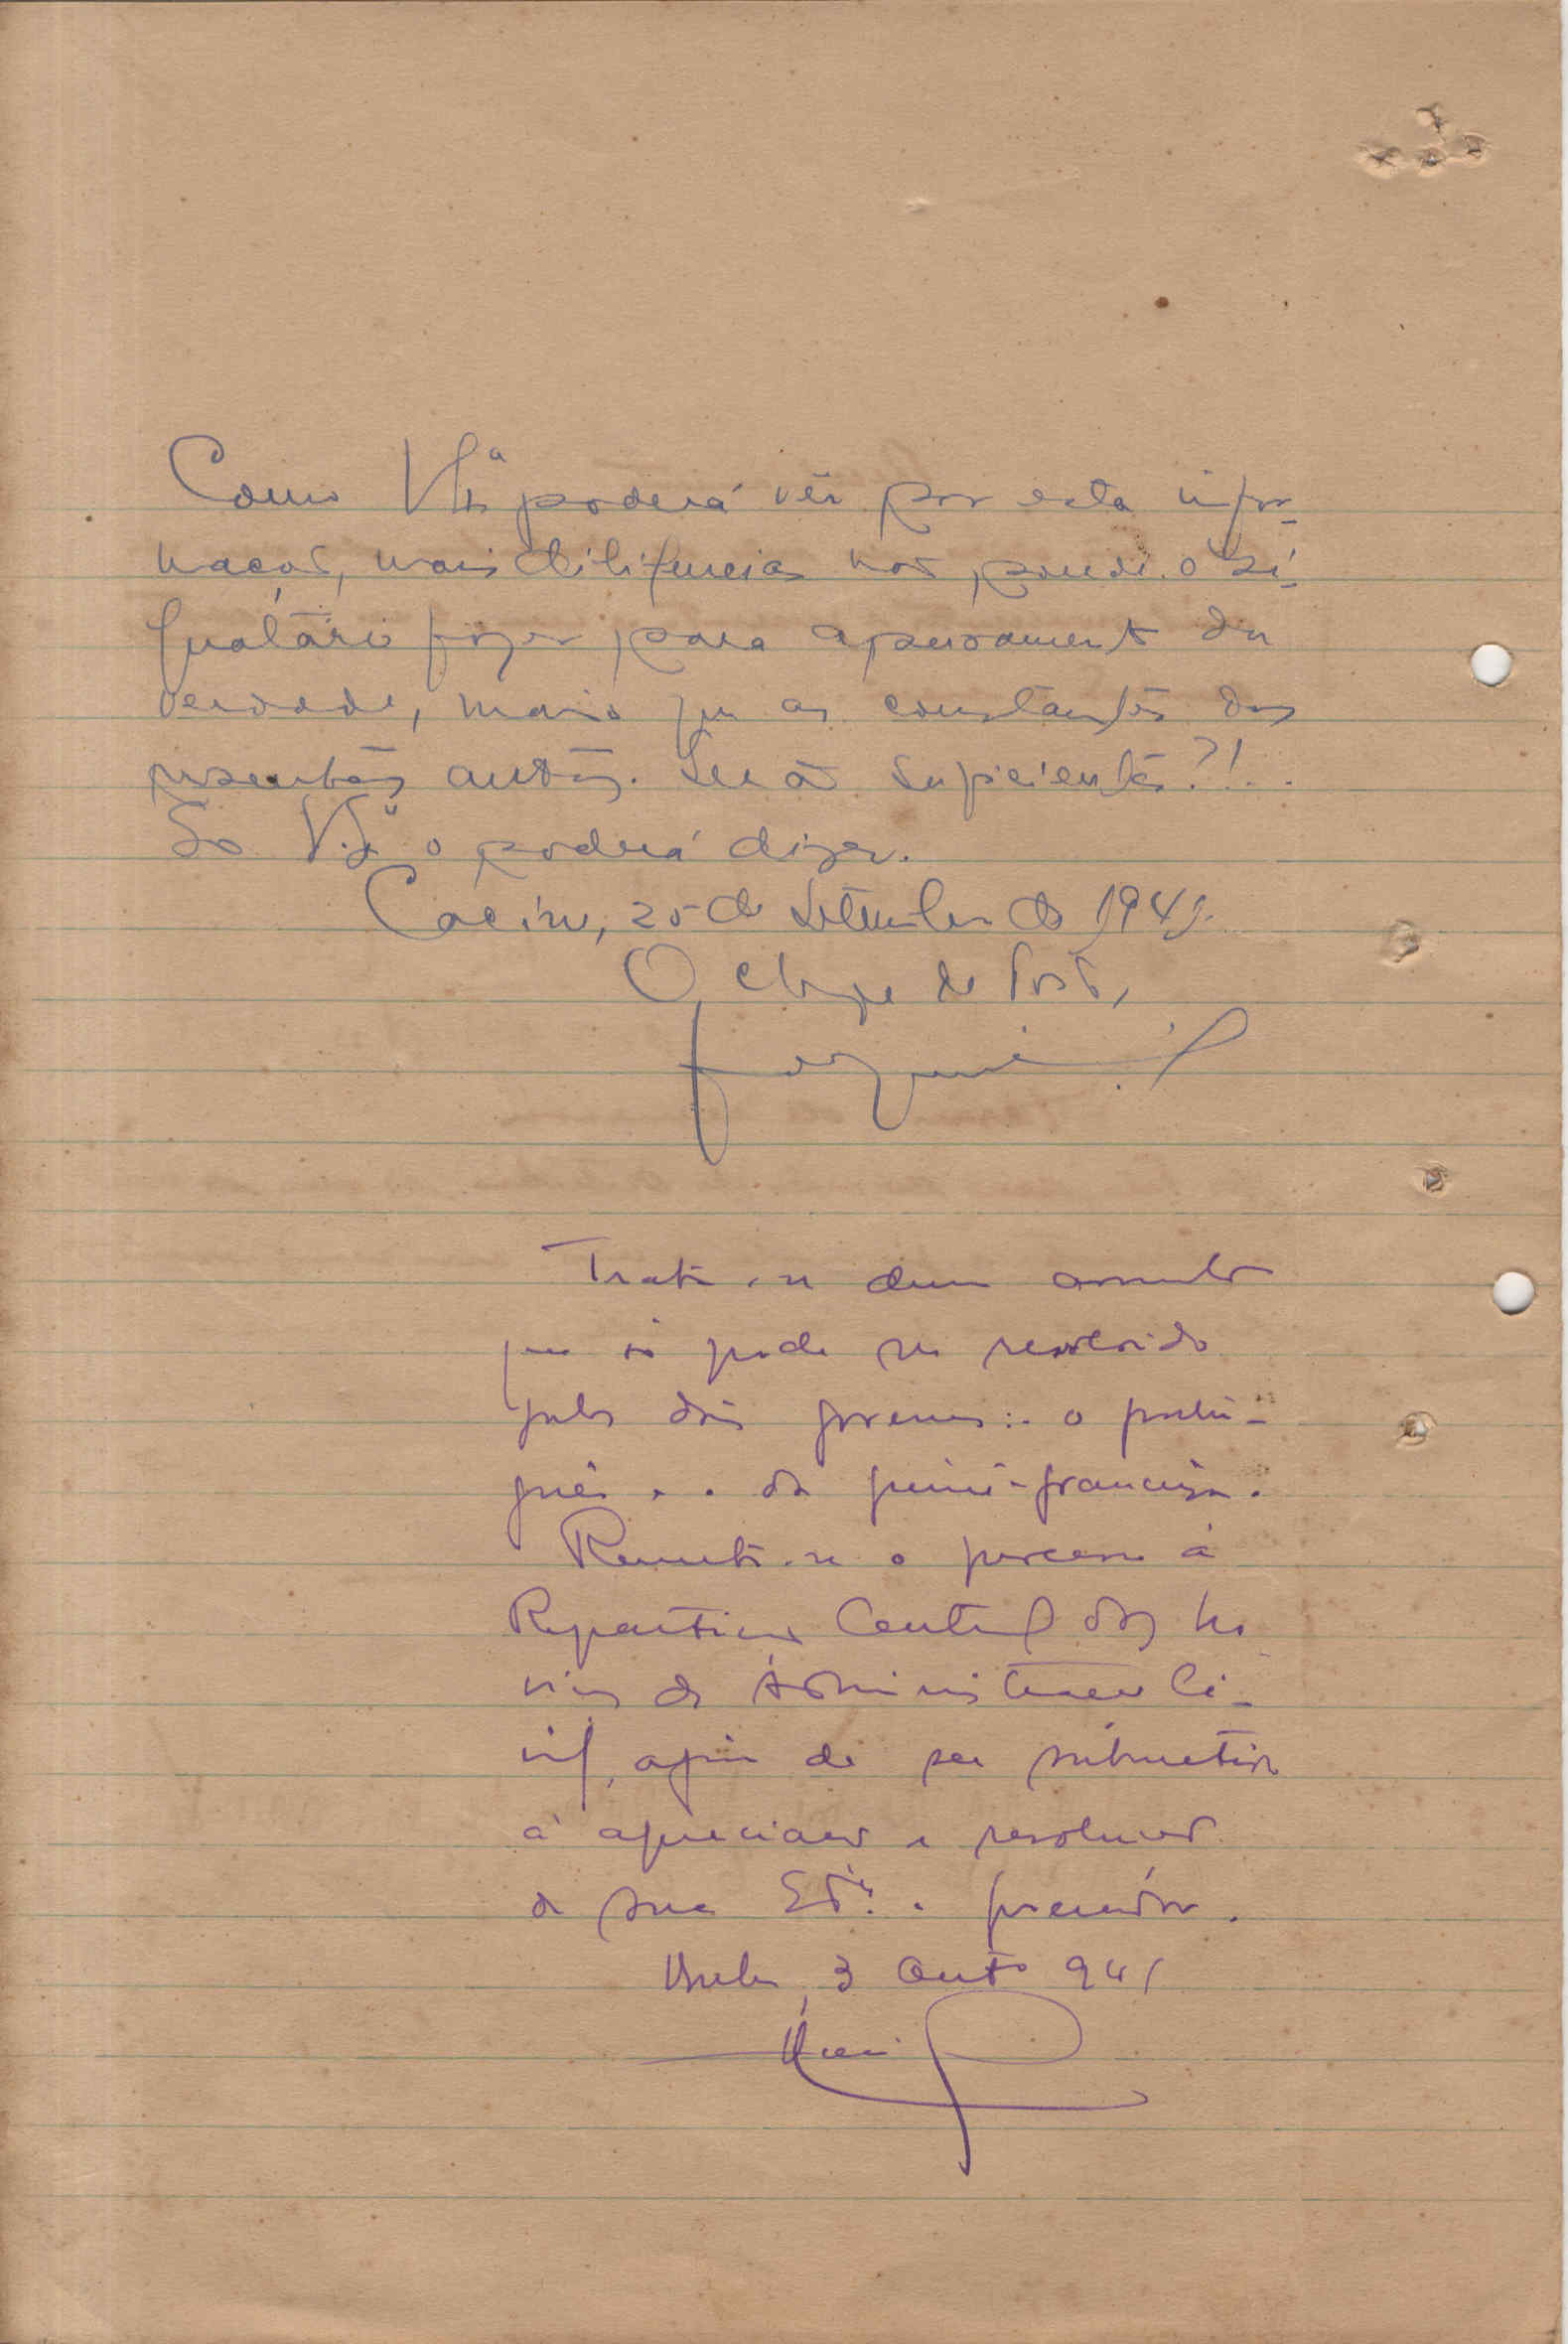 Como V. Sª poderá vêr por esta infor-
mação, mais diligencias não poude o si-
gnatário fazer para apuramento da
verdade, mais que as constantes dos
presentes autos. Serão suficientes?!..
Só V. Sª o poderá dizer.
Cacine, 25 de Setembro de 1941.
O Chefe de Posto,
Trata-se dum assunto
que só pode ser resolvido
pelos dois governos:- o portu-
guês e o da guiné-francesa.
Remeta-se o processo á
Repartição Central dos Ser
viços de Administração Ci-
vil, afim de ser submetido
á apreciação e resolução
de Sua Exª. o governador.
3 Outº 941